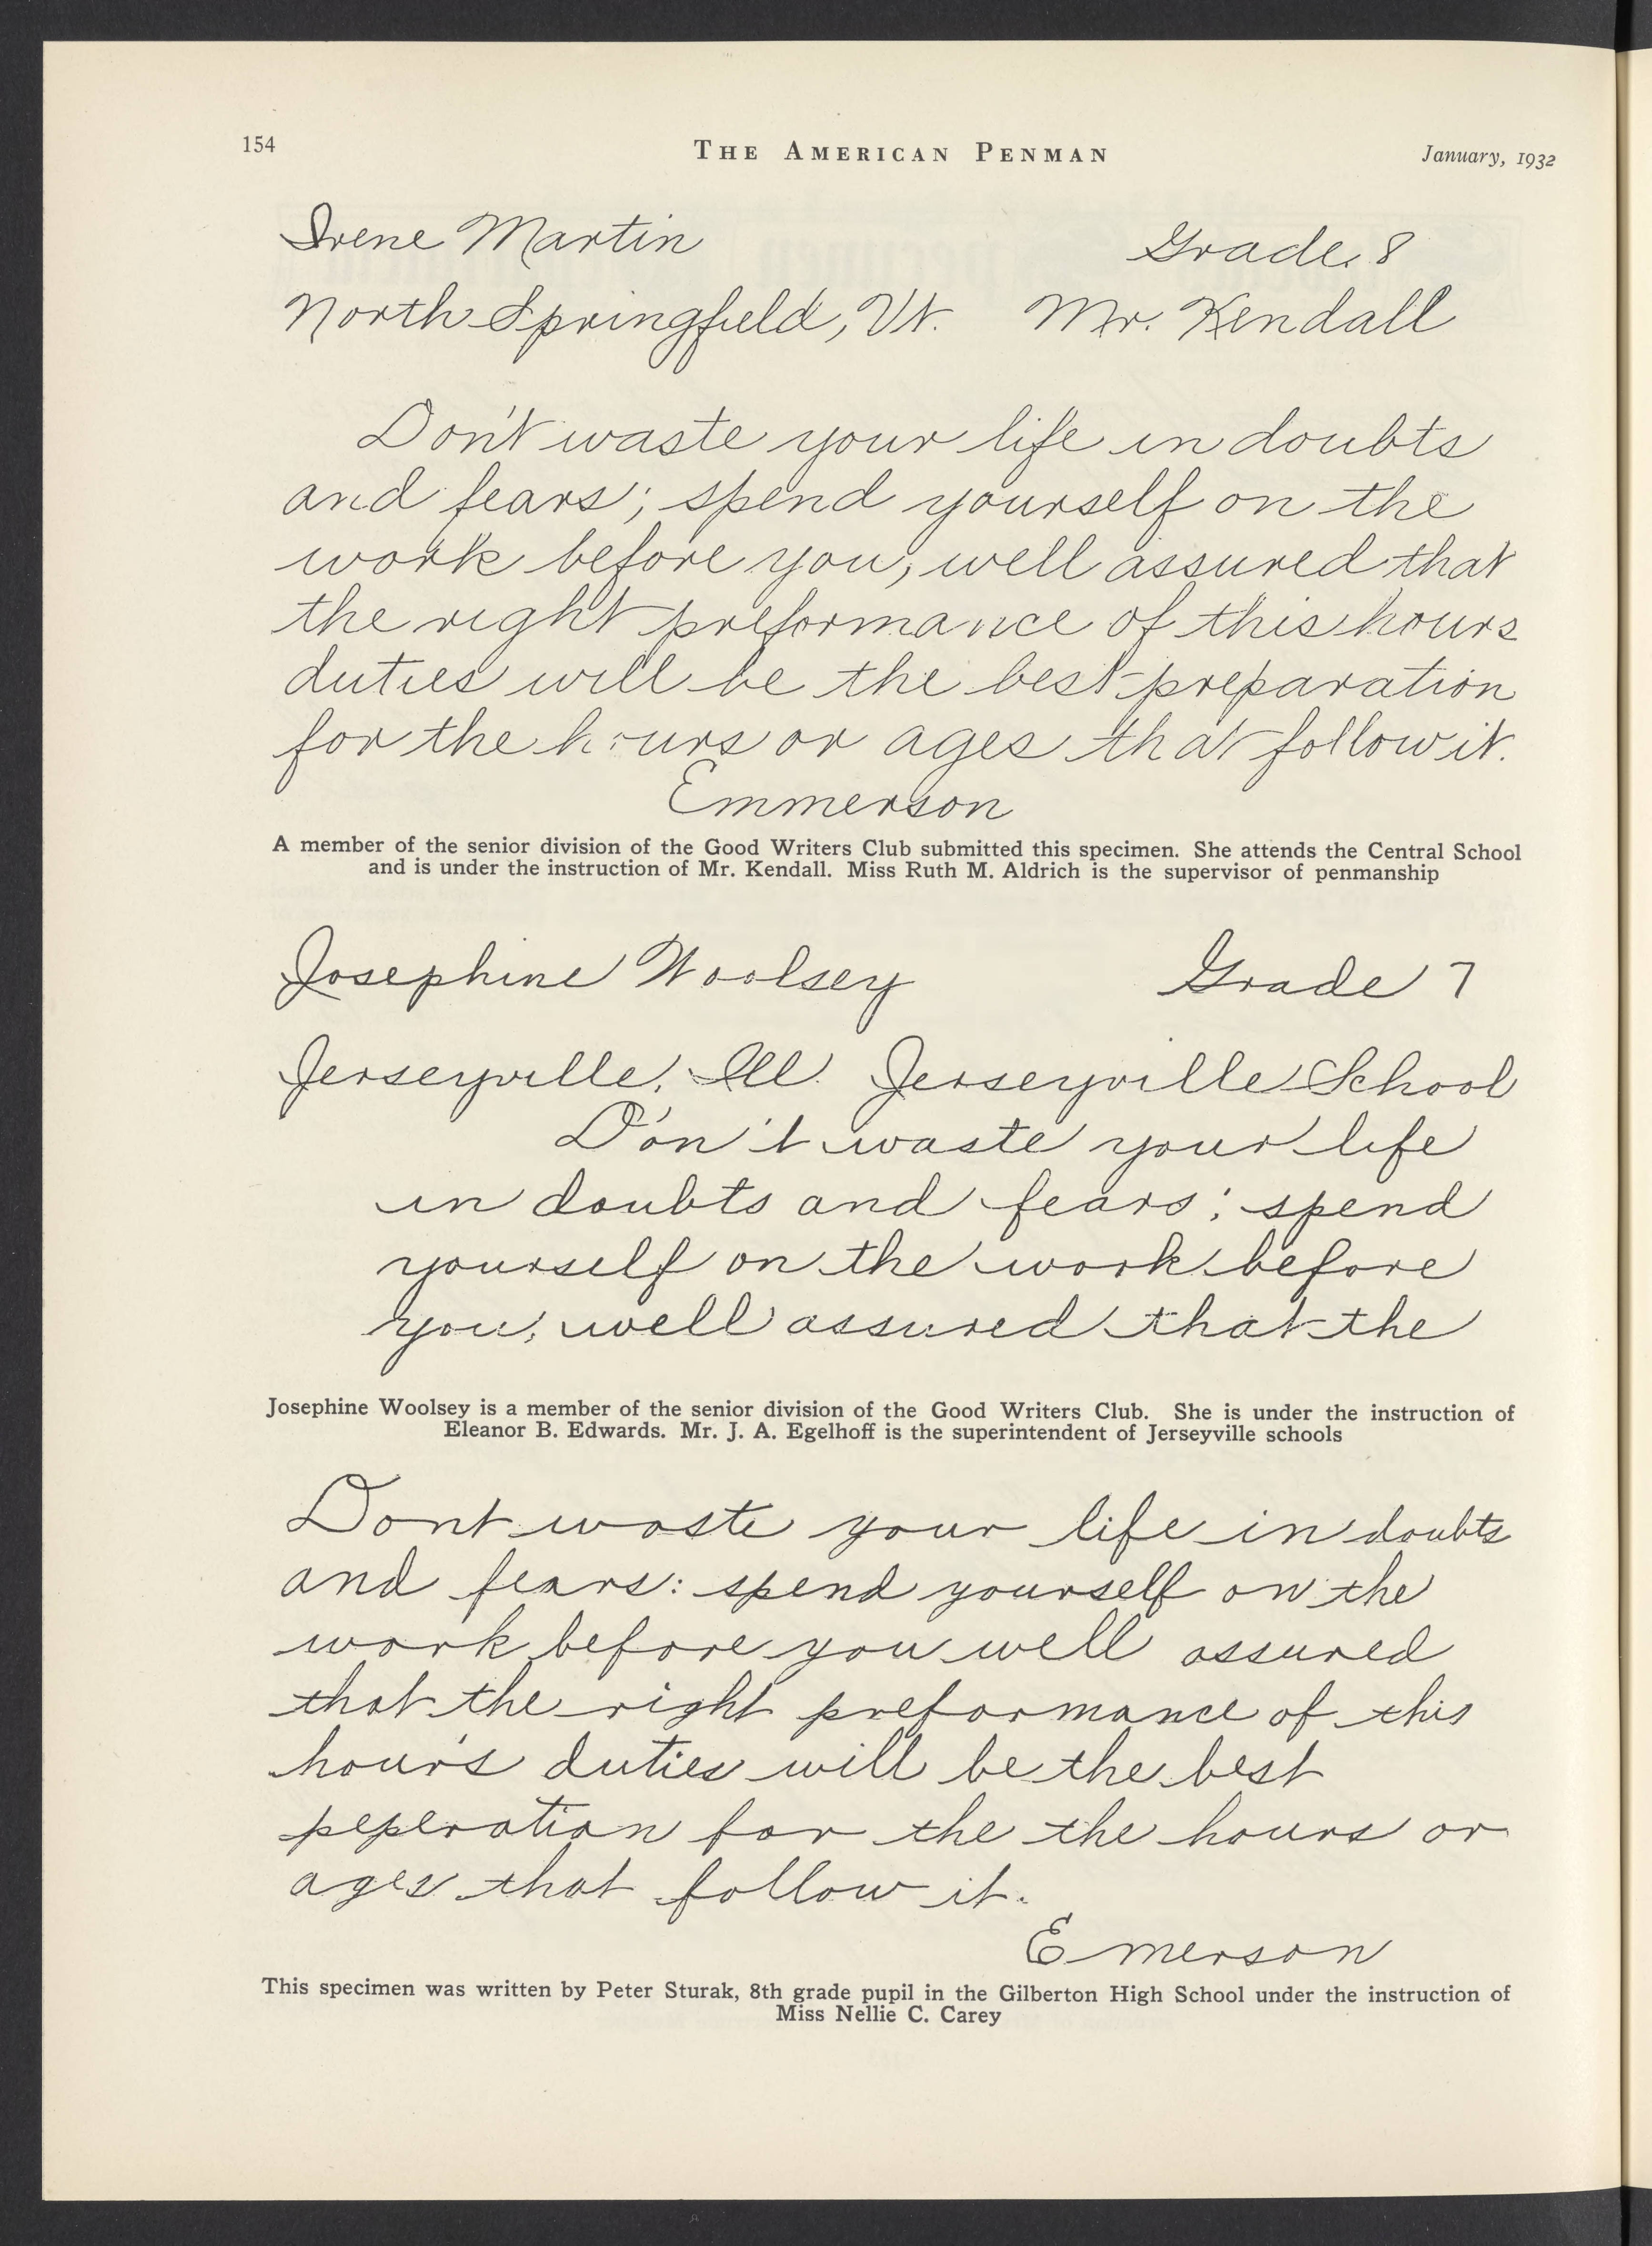 154
THE AMERICAN PENMAN
January, 1932
Irene Martin Grade 8
North Springfield, Vt. Mr. Kendall
Don't waste your life in doubts
and fears; spend yourself on the
work before you, well assured that
the right preformance of this hours
duties will be the best preparation
for the hours or ages that follow it.
Emmerson
A member of the senior division of the Good Writers Club submitted this specimen. She attends the Central School
and is under the instruction of Mr. Kendall. Miss Ruth M. Aldrich is the supervisor of penmanship
Josephine Woolsey Grade 7
Jerseyville, Ill. Jerseyville School
Don't waste your life
in doubts and fears; spend
yourself on the work before
you, well assured that the
Josephine Woolsey is a member of the senior division of the Good Writers Club. She is under the instruction of
Eleanor B. Edwards. Mr. J. A. Egelhoff is the superintendent of Jerseyville schools
Dont waste your life in doubts
and fears: spend yourself on the
work before you well assured
that the right preformance of this
hour's duties will be the best
peperation for the the hours or
ages that follow it.
Emerson
This specimen was written by Peter Sturak, 8th grade pupil in the Gilberton High School under the instruction of
Miss Nellie C. Carey